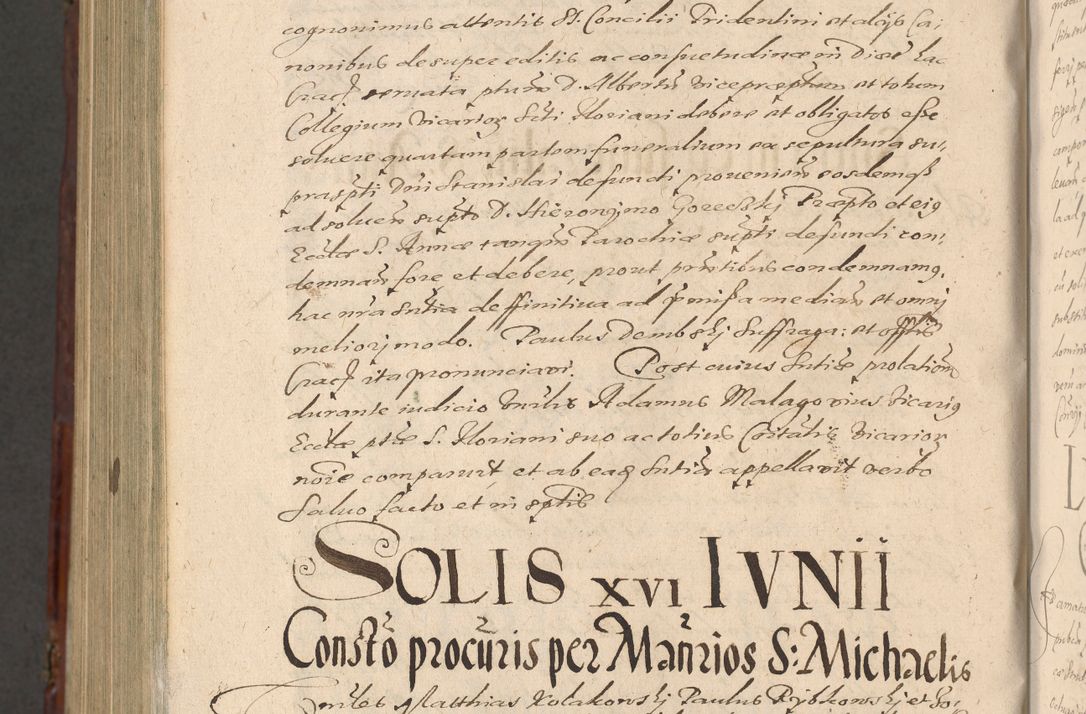 cognonimus attentis St. Concilii Tridentini et alijs Ca,
nonibus desuper editis ac consuetudine in Diœ hac
Crac̃ seruata ptum D. Albertũ viceprœptum et totum
Collegium Vicarior Scti Floriani debere et obligatos esse
soluere quartam partem funeralium ex sepultura su,
praspti Dni Stanislai defuncti prouenien̄ eosdemq̃
ad soluen̄ supto D. Hieronymo Gorecskj Præpto et eig
Ecclæ S. Annæ tanq̃m Parochiæ supti defuncti con,
demnan̄ fore et debere, prout pntibus condemnamg,
hac nra sntia deffinitiua ad p̃missa median̄ et omnj
meliorj modo. Paulus Dembskj Suffraga: et offlis
Crac̃ ita pronunciaui. Post cuius sntiæ prolationẽ
durante iudicio Vnilis Adamus Malagovius Vicarig
Ecclæ ptæ S. Floriani suo ac totius Cõitatis vicarior
noĩe comparuit, et ab eag sntia appellauit verbo
Saluo facto et in sptis
SOLIS XVI IVNII
Constõ procuris per Manrios S: Michaelis
Matthias Kolakowskj Paulus Rybkowskj et